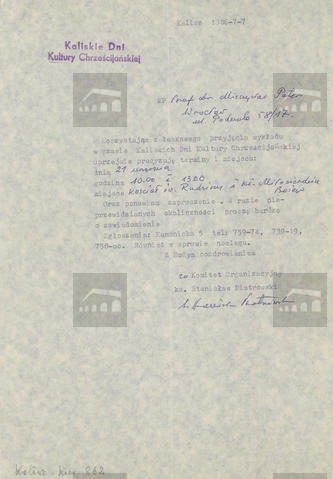 Kalisz 1986-7-7
Kaliskie Dni
Kultury Chrześcijańskiej
WP Prof dr Mieczysław Pater
Wrocław
ul. Podwale 58/17
Korzystając z łaskawego przyjęcia wykładu
w czasie Kaliskich Dni Kultury Chrześcijańskiej
uprzejmie precyzuję terminy i miejsce:
dnia 21 września
godzina 10.00 i 13.00
miejsce kościół św. Rodziny i kś. Miłosierdzia
Bożego
Oraz ponawiam zaproszenie. W razie nie-
przewidzianych okoliczności proszę bardzo
o zawiadomienie
Zgłoszenia: Kanonicka 5 tel: 759-74, 739-19,
750-oo. Również w sprawie noclegu.
Z Bożym pozdrowieniem
za Komitet Organizacyjny
ks. Stanisław Piotrowski